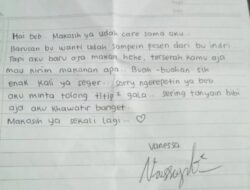 Hai beb Makasih ya udah care sama aku
Barusan bu wanti udah sampein pesen dari bu indri
Tapi aku baru aja makan hehe, terserah kamu aja
mau kirim makanan apa. Buah-buahan sih
enak kali ya seger.. sorry ngerepotin ya beb
aku minta tolong titip² gala.. sering tanyain bibi
aja aku khawatir banget.
Makasih ya sekali lagi
vanessa